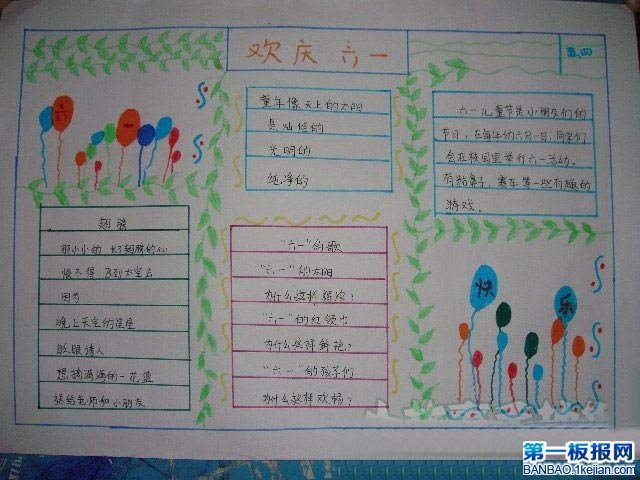 欢庆 六一
五.四
六一
童年像天上的太阳
是灿烂的
光明的
纯净的
六一儿童节是小朋友们的
节日，在每年的六月一日，同学们
会在校园里举行六一活动。
有粘鼻子，赛车等一些有趣的
游戏。
翅膀
那小小的 长了翅膀的心
恨不得 飞到太空去
因为
晚上天空的星星
眨眼诱人
想摘满满的一花篮
送给老师和小朋友
“六一”的歌
“六一”的太阳
为什么这样辉煌？
“六一”的红领巾
为什么这样鲜艳？
“六一”的孩子们
为什么这样欢畅？
快
乐
第一板报网
BANBAO.1kejian.com